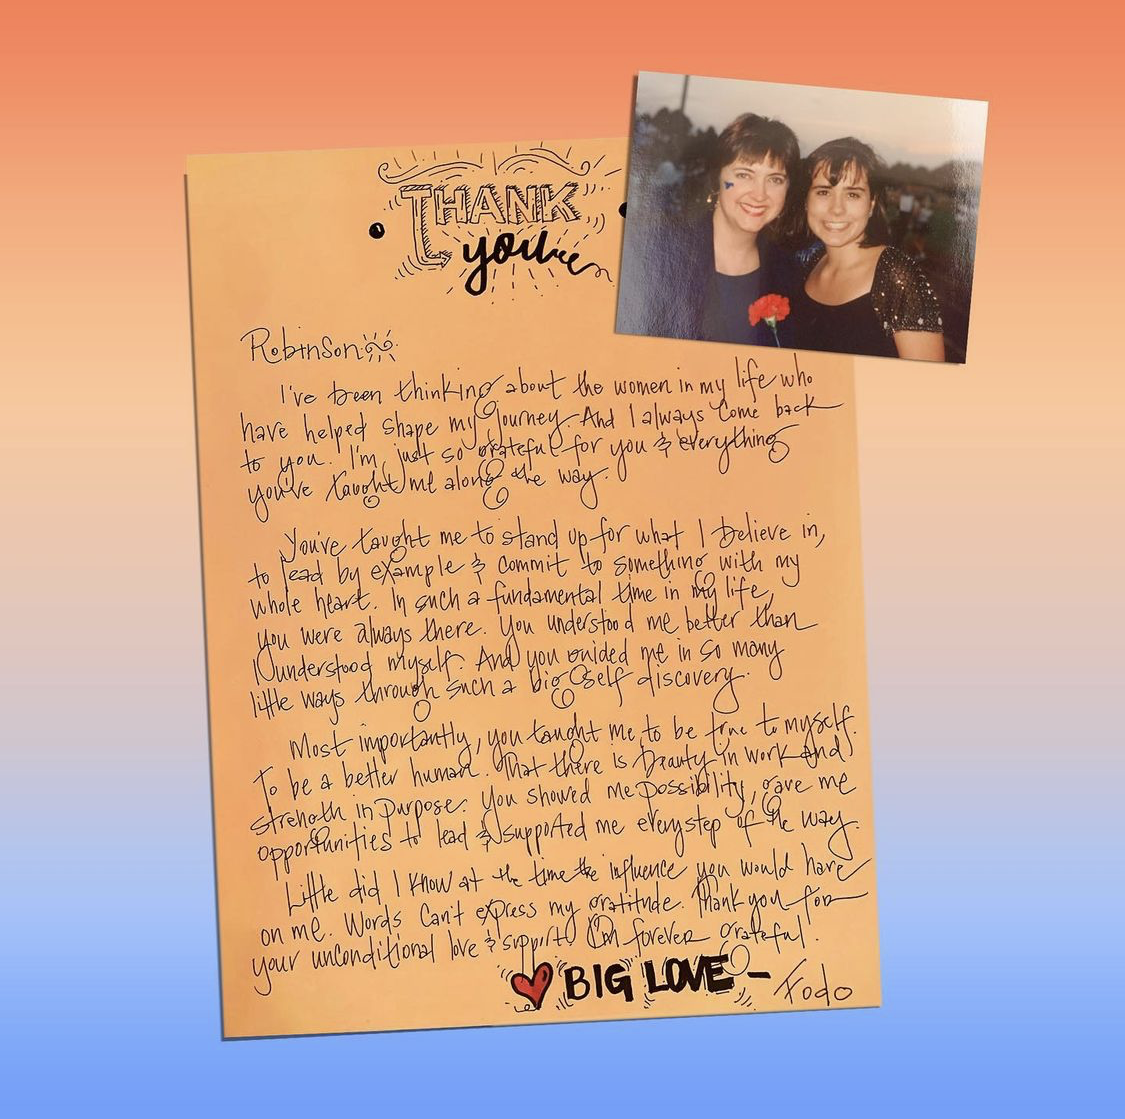 THANK
you
Robinson
I've been thinking about the women in my life who
have helped shape my journey. And I always come back
to you. I'm just so grateful for you & everything
you've taught me along the way.
You've taught me to stand up for what I believe in,
to lead by example & commit to something with my
whole heart. In such a fundamental time in my life,
you were always there. You understood me better than
I understood myself. And you guided me in so many
little ways through such a big self discovery.
Most importantly, you taught me to be true to myself.
To be a better human. That there is beauty in work and
strength in purpose. You showed me possibility, gave me
opportunities to lead & supported me every step of the way.
Little did I know at the time the influence you would have
on me. Words can't express my gratitude. Thank you for
your unconditional love & support. I'm forever grateful.
BIG LOVE - Fodo